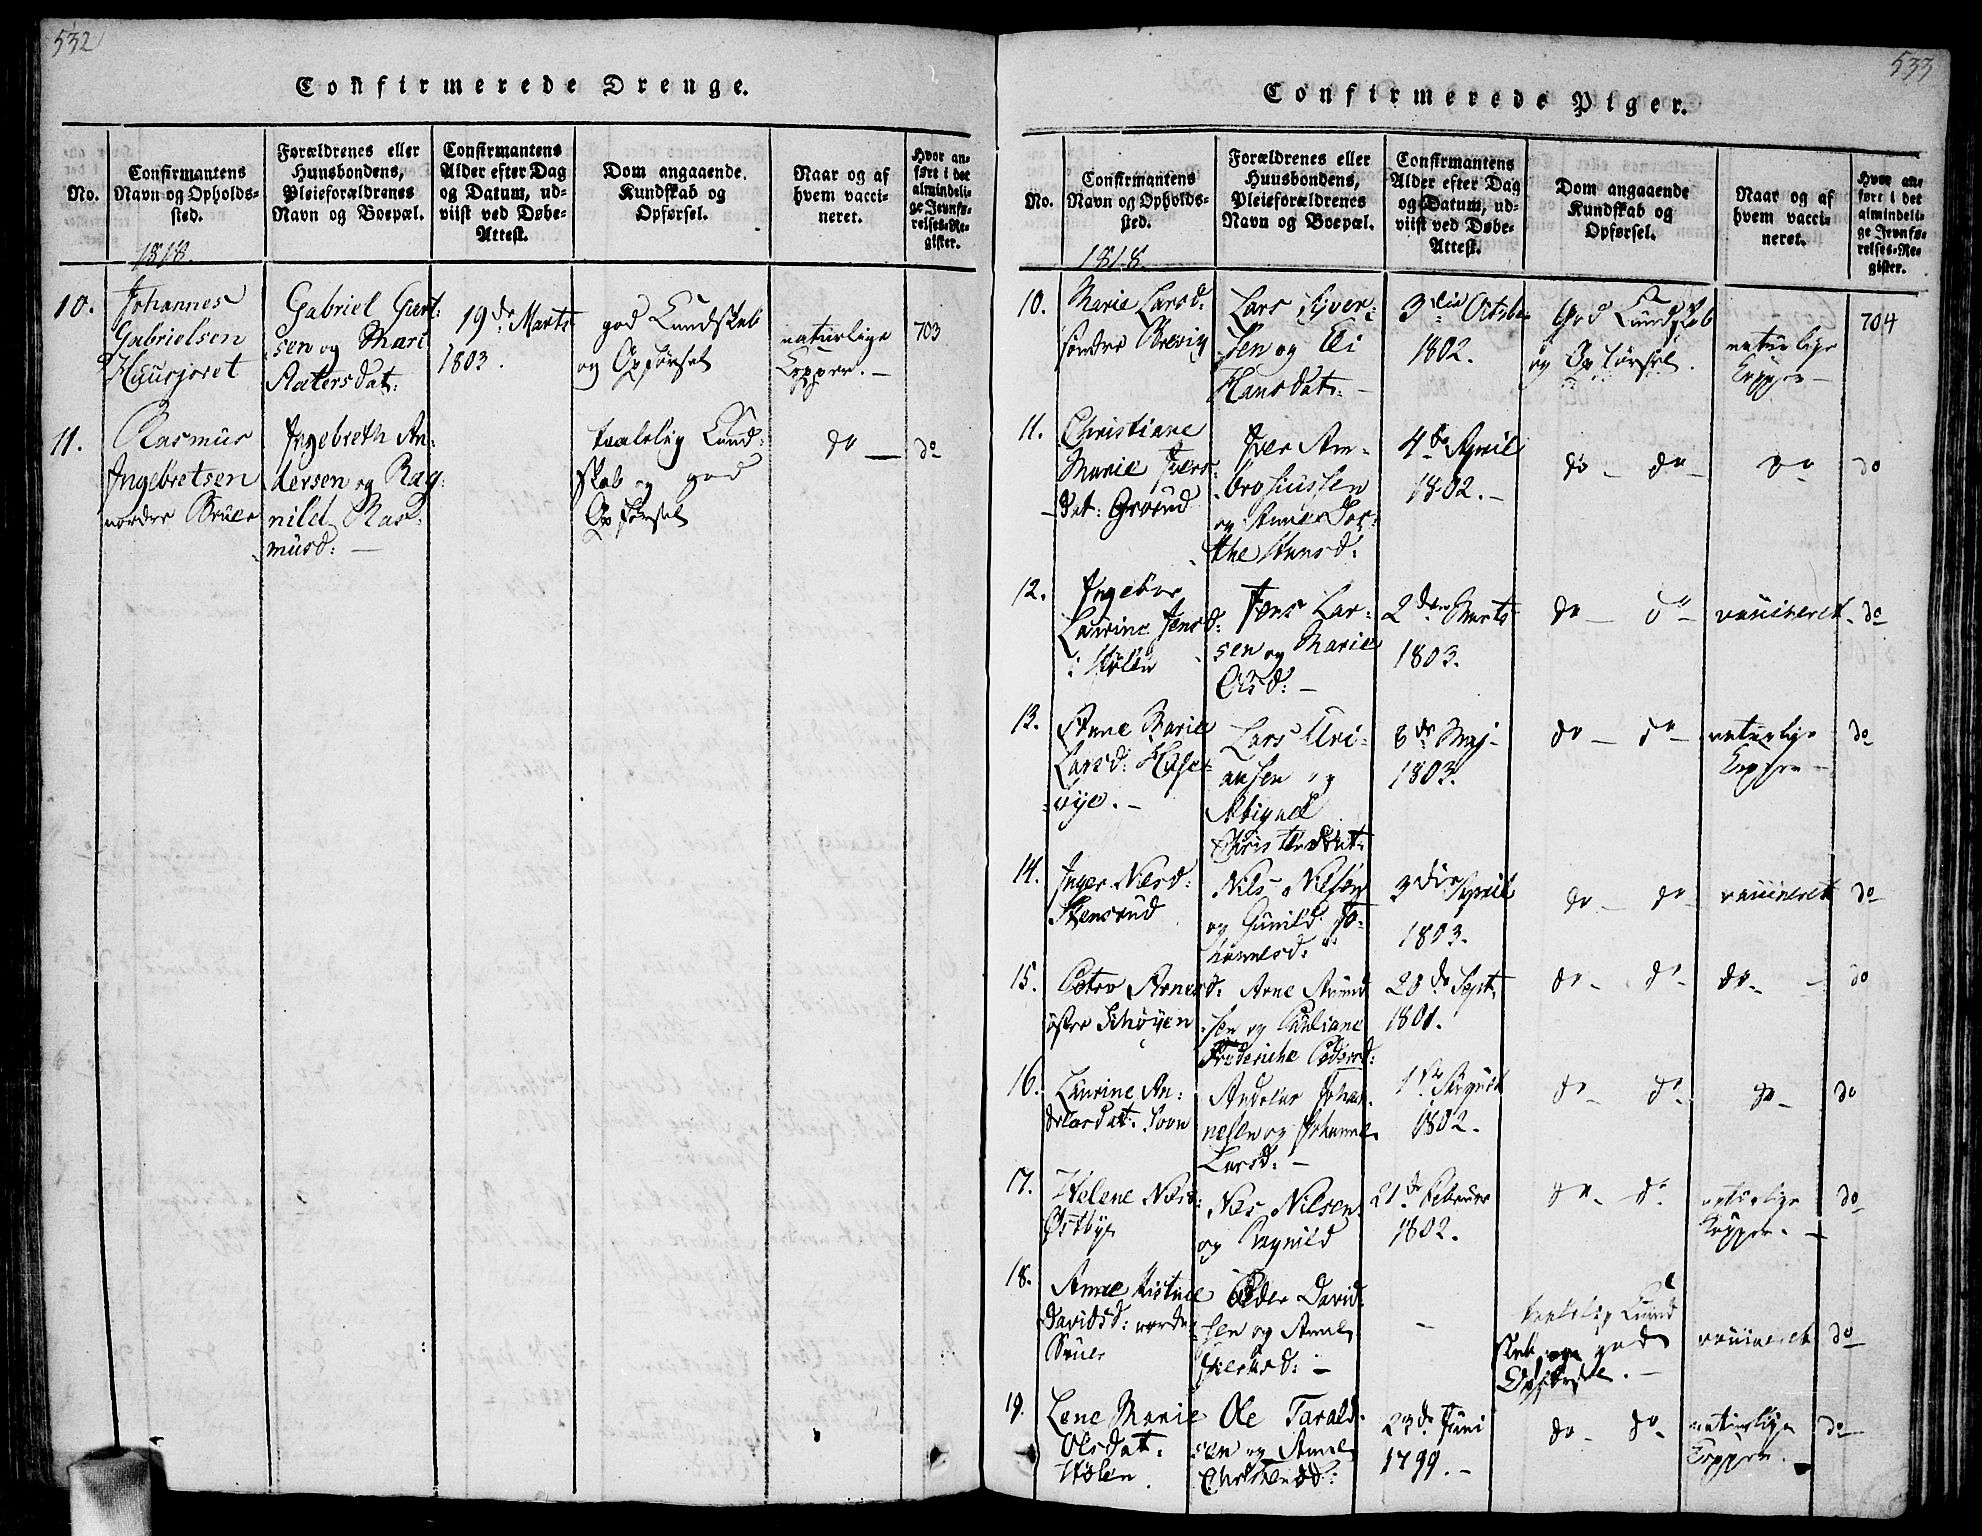 532
Confirmerede Drenge.
No.
Confirmantens
Navn og Opholds-
sted.
Forældrenes eller
Huusbondens,
Pleieforældrenes
Navn og Boepæl.
Confirmantens
Alder efter Dag
og Datum, ud-
viist ved Døbe-
Attest.
Dom angaaende
Kundskab og
Opførsel.
Naar og af
hvem vacci-
neret.
Hvor an-
ført i det
almindeli-
ge Jevnfø-
relses-Re-
gister.
1818.
10.
Johannes
Gabrielsen
Gabriel
sen og Mari
19de Marts
1803.
god Kundskab
og Opførsel
naturlige
Kopper. —
703
11.
Rasmus
Ingebretsen
nordre Bruer
Ingebreth An-
dersen og Rag-
nild Ras-
musd: —
taalelig Kund-
skab og god
Opførsel
do —
do
533
Confirmerede Piger.
No.
Confirmantens
Navn og Opholds-
sted.
Forældrenes eller
Huusbondens,
Pleieforældrenes
Navn og Boepæl.
Confirmantens
Alder efter Dag
og Datum, ud-
viist ved Døbe-
Attest.
Dom angaaende
Kundskab og
Opførsel.
Naar og af
hvem vacci-
neret.
Hvor an-
ført i det
almindeli-
ge Jevnfø-
relses-Re-
gister.
1818.
10.
Marie Larsd:
søndre Brevig
Lars Syver-
sen og Eli
Hansdat: —
3die Octobr
1802.
God Kundskab
og Opførsel.
naturlige
Kopper —
704
11.
Christiane
Marie Ivers-
dat: Grøsud
Iver Am-
brosiussen
og Anne Dor-
the Hansd:
4de April
1802. —
do — do —
do
do
12.
Ingebor
Laurine Jensd:
i Hølen
Jens Lar-
sen og Marie
Olsd: —
2den Marts
1803.
do — do —
vaccineret
do
13.
Anne Marie
Larsd:
Lars Uri-
ansen og
Abigael
Christensdat:
8de Maj
1803.
do — do —
naturlige
Kopper —
do
14.
Inger Nilsd:
Stensrud
Nils Nilsen
og Gunild Jo-
hannesd:
3die April
1803.
do — do —
vaccineret
do
15.
Arnesd.
østre Schøyen
Arne Amund
sen og Juliane
Frederiche Pedersd:
20de Sept.
1801.
do — do
do —
do
16.
Laurine An-
dreasdat: Sovn
Andreas Johan-
nesen og Johanne
Larsd: —
1ste August
1802.
do — do
do —
do
17.
Helene Nilsd:
Østbye
Nils Nilsen
og Ragnild
21de Februar
1802.
do — do
naturlige
Kopper. —
do
18.
Anne Kistine
Davidsd: nordre
Bruer
David-
sen og Anne
Iversd: —
—
taalelig Kund
skab og god
Opførsel. —
vaccineret
do
19.
Lene Marie
Olsdat:
Hølen
Ole Tarald-
sen og Anne
Christensd:
23de Juni
1799. —
do — do —
naturlige
Kopper.
do